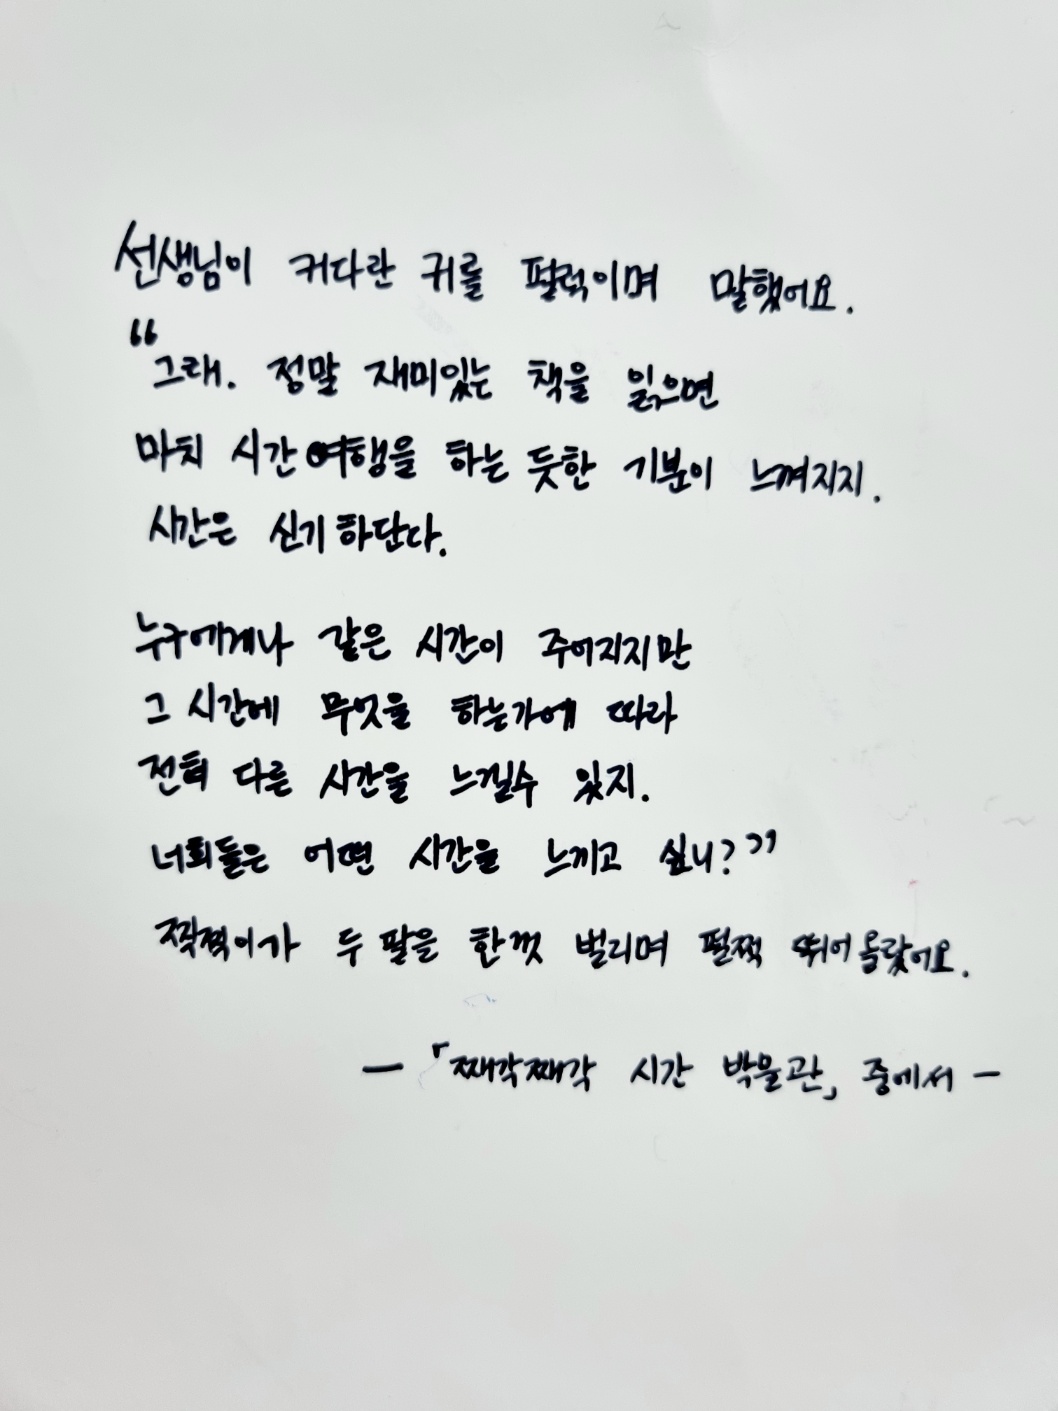 선생님이 커다란 귀를 펄럭이며 말했어요.
"그래. 정말 재미있는 책을 읽으면
마치 시간 여행을 하는 듯한 기분이 느껴지지.
시간은 신기하단다.
누구에게나 같은 시간이 주어지지만
그 시간에 무엇을 하는가에 따라
전혀 다른 시간을 느낄수 있지.
너희들은 어떤 시간을 느끼고 싶니?"
찍찍이가 두 팔을 한껏 벌리며 펄쩍 뛰어올랐어요.
-「째각째각 시간 박물관」 중에서-